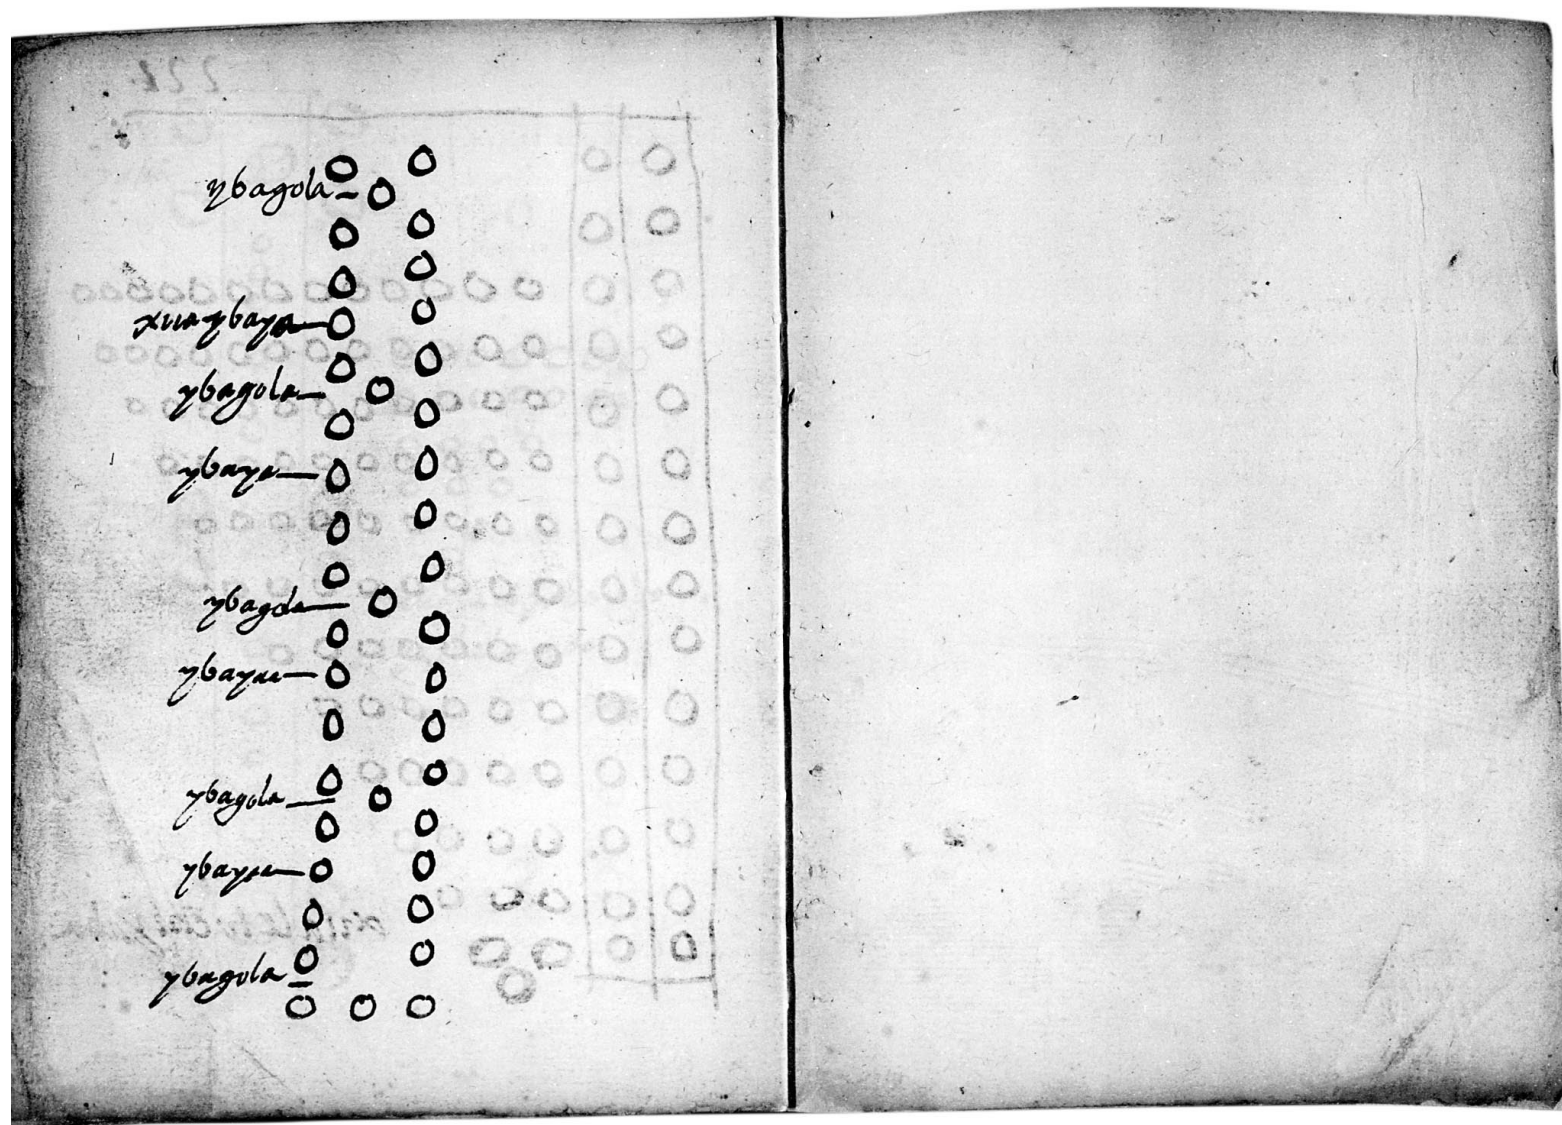 ybagola
xua ybaya
ybagola
ybaya
ybagola
ybaya
ybagola
ybaya
ybagola